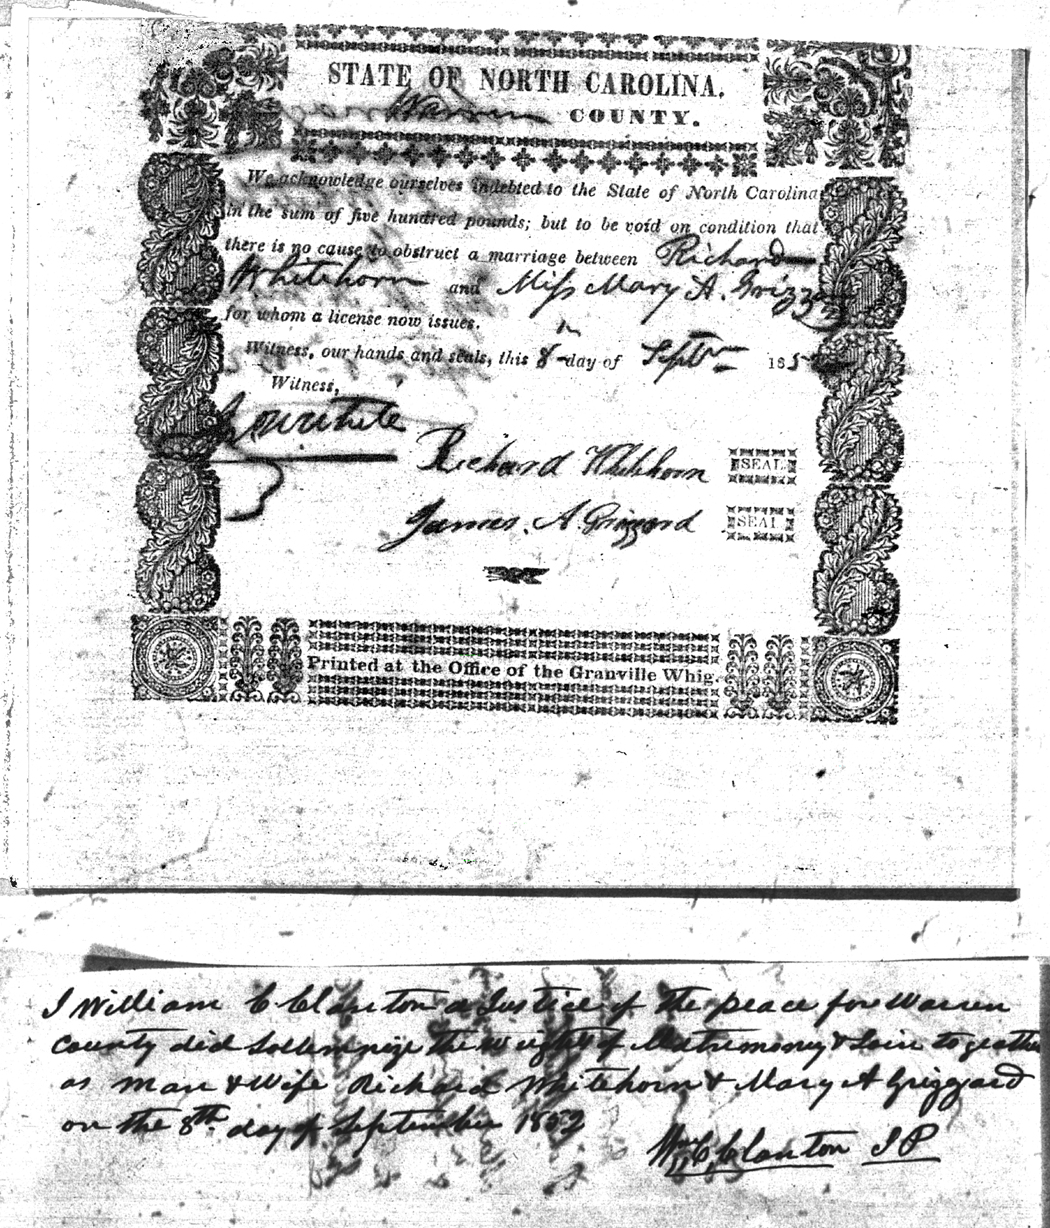 STATE OF NORTH CAROLINA.
Warren COUNTY.
We acknowledge ourselves indebted to the State of North Carolina
in the sum of five hundred pounds; but to be void on condition that
there is no cause to obstruct a marriage between Richard
Whitehorn and Miss Mary A. Grizz
for whom a license now issues.
Witness, our hands and seals, this 8th day of Septr 185
Witness,
White
Richard Whitehorn SEAL
James. A. Grizzard SEAL
Printed at the Office of the Granville Whig.
I William C Clanton a Justice of the peace for Warren
County did Sollemnize the wrights of Matrimony & Join together
as Man & Wife Richard Whitehorn & Mary A Griggard
on the 8th day of September 1852
Wm C Clanton J P